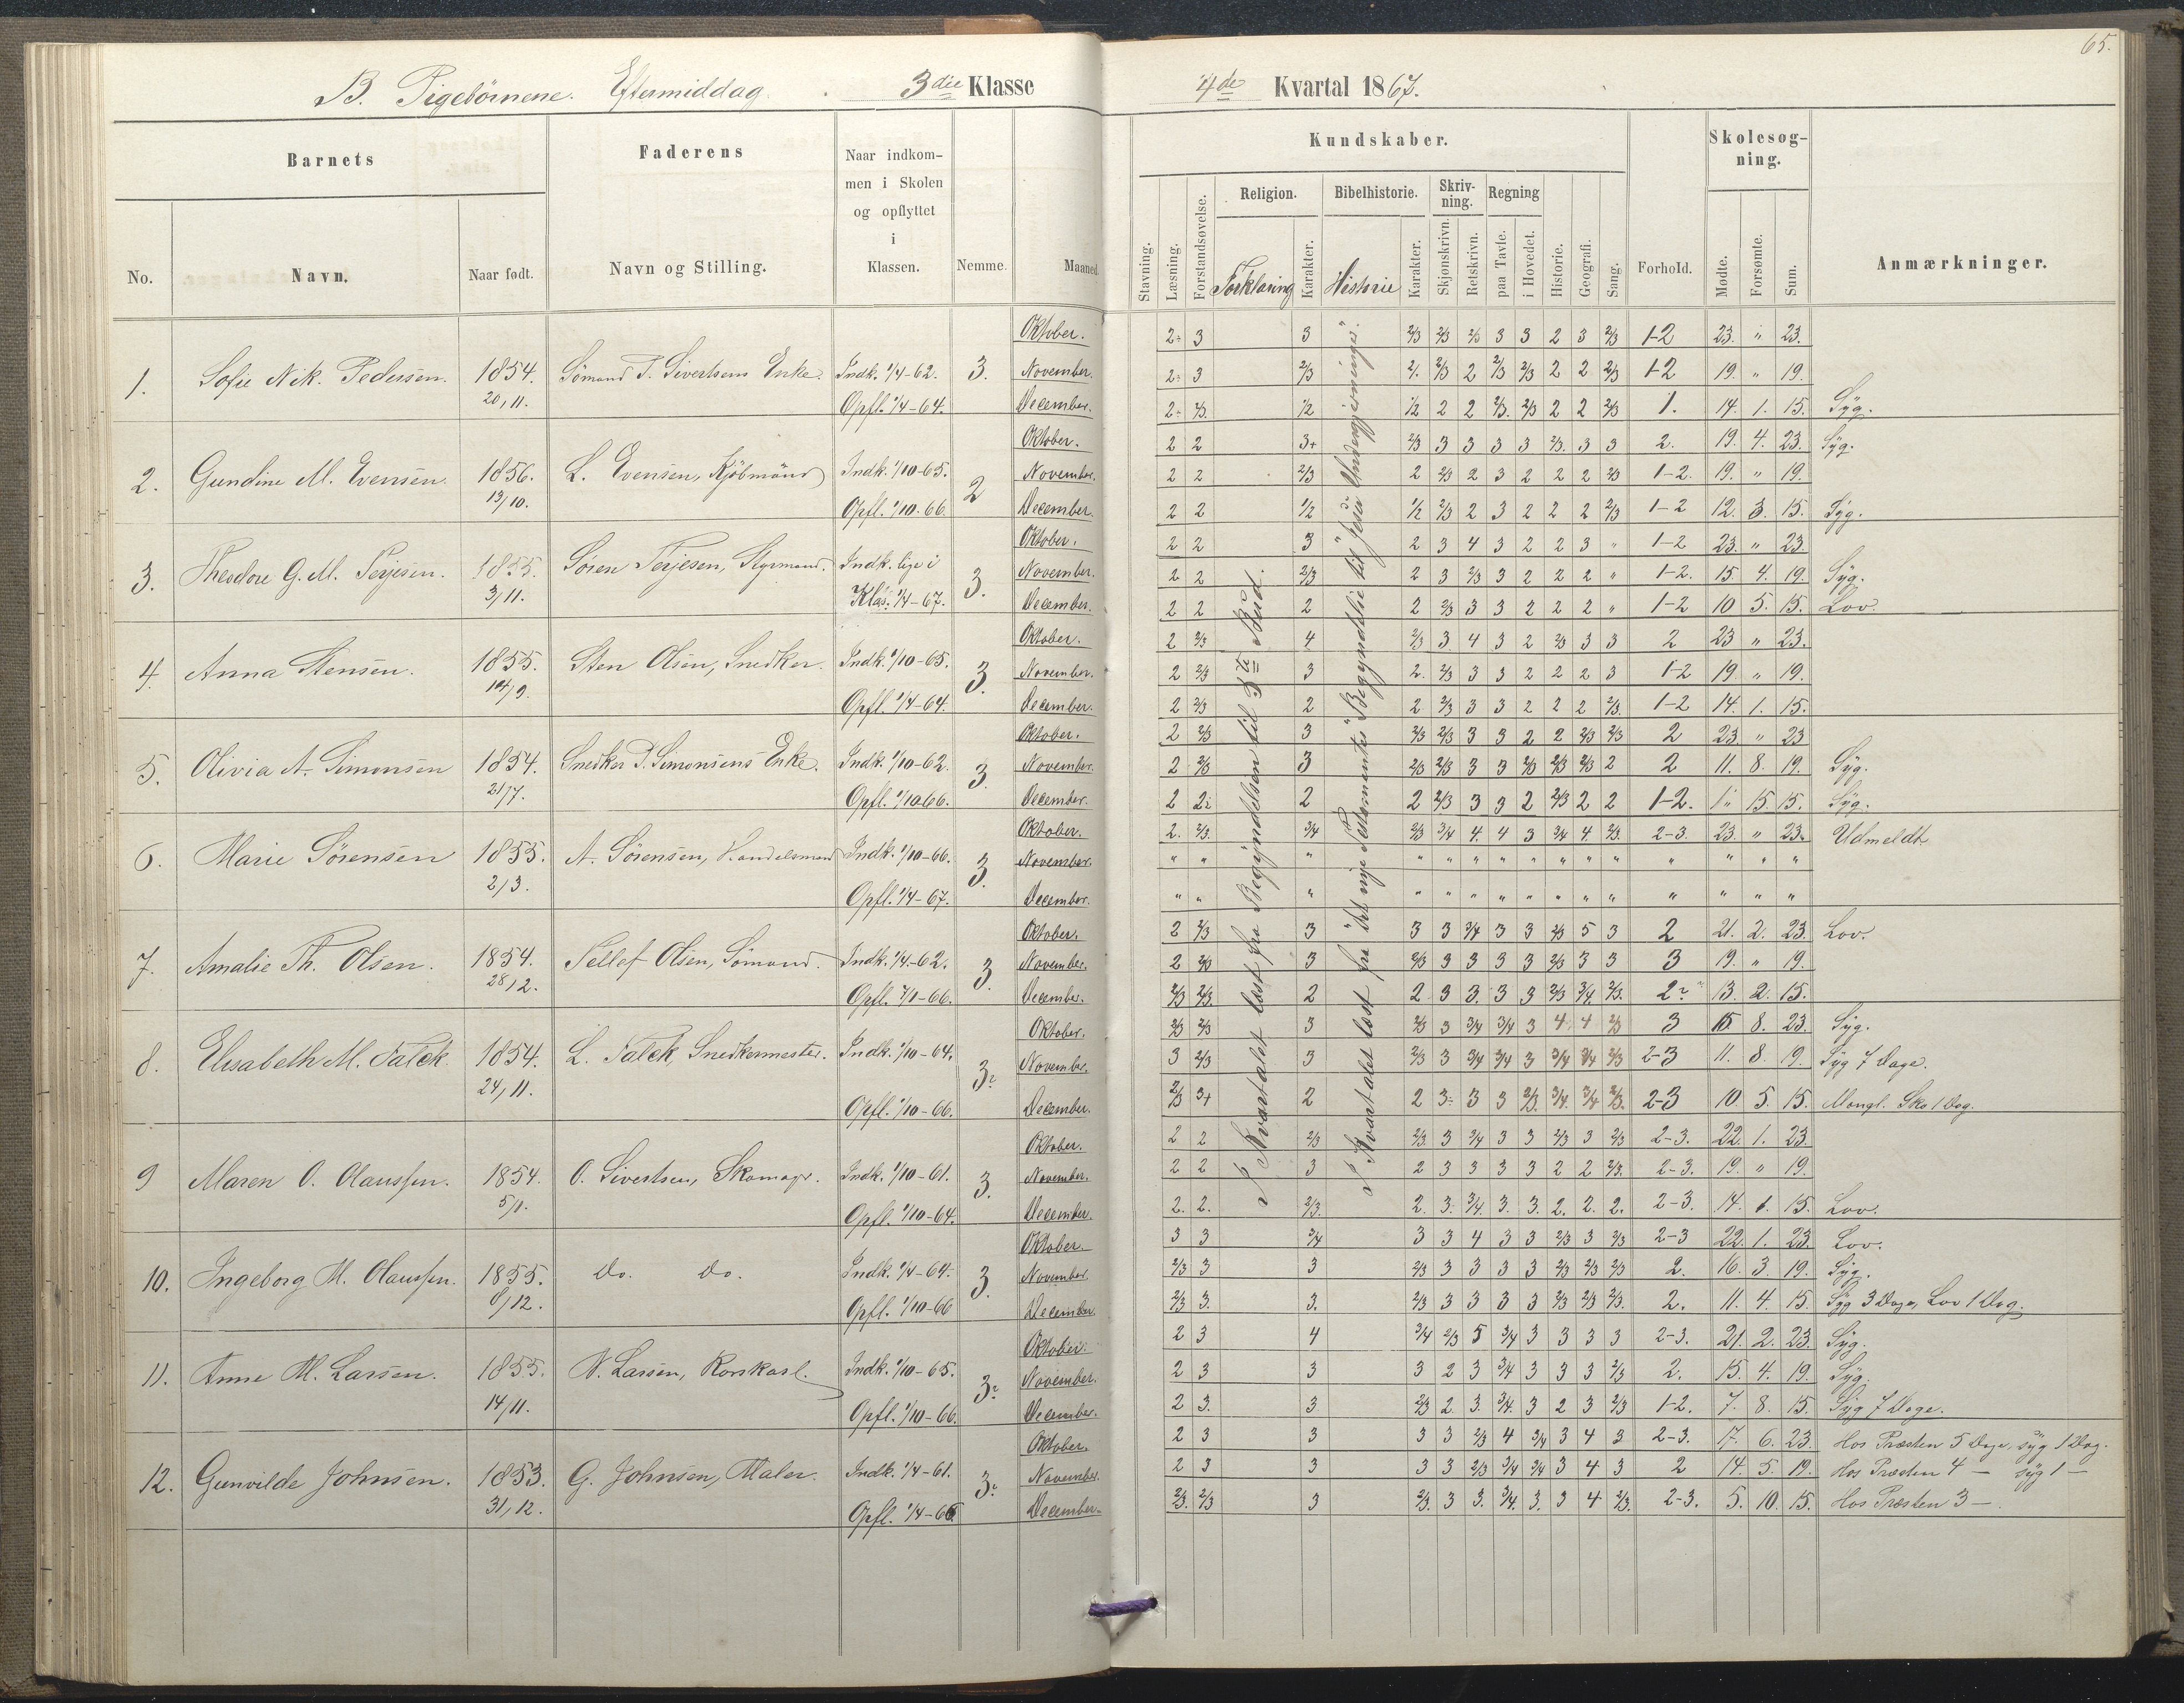 65.
B. Pigebørnene. Eftermiddag. 3die Klasse
4de Kvartal 1867.
Barnets
Faderens
Naar indkommen i Skolen og opflyttet i Klassen.
Nemme.
Maaned.
No.
Navn.
Naar født.
Navn og Stilling.
Kundskaber.
Skolesøgning.
Stavning.
Læsning.
Forstandsøvelse.
Religion.
Forklaring
Karakter.
Bibelhistorie.
Historie
Karakter.
Skrivning.
Skjønskrivn.
Retskrivn.
Regning
paa Tavle.
i Hovedet.
Historie.
Geografi.
Sang.
Forhold.
Mødte.
Forsømte.
Sum.
Anmærkninger.
I Kvartalet læst fra Begyndelsen til 3te Bud.
I Kvartalet læst fra "Det nye Testamentes" Begyndelse til "Jesu Undergjerninger".
1. Sofie Nik. Pedersen. 1854. 20/11. Sømand P. Sivertsens Enke. Indk. 1/4-62. Opfl. 1/4-64. 3.
Oktober. 2÷ 3 3 2/3 2/3 2/3 3 3 2 3 2/3 1-2 23. " 23.
November. 2÷ 3 2/3 2. 2/3 2 2/3 2/3 2 2 2/3 1-2 19. " 19.
December. 2÷ 2/3. 1/2 1/2 2 2 2/3. 2/3 2 2 2/3 1. 14. 1. 15. Syg.
2. Gundine M. Evensen. 1856. 13/10. L. Evensen, Kjøbmand Indk. 1/10-65. Opfl. 1/10-66. 2
Oktober. 2 2 3+ 2/3 3 3 3 3 2/3. 3 3 2. 19. 4. 23. Syg.
November. 2 2 2/3 2 2/3 2 3 2 2 2 2/3 1-2. 19. " 19.
December. 2 2 1/2 1/2 2/3 2 3 2 2 2 2/3 1-2 12. 3. 15. Syg.
3. Theodore G. M. Terjesen. 1855. 3/11. Søren Terjesen, Styrmand. Indk. lige i Klas. 1/4-67. 3.
Oktober. 2 2 3 2 3 4 3 2 2 3 " 1-2 23. " 23.
November. 2 2 2/3 2 3 2/3 3 2 2 2 " 1-2. 15. 4. 19. Syg.
December. 2 2 2 2 2/3 3 3 2 2 2 " 1-2 10 5. 15. Lov.
4. Anna Stensen. 1855. 14/9. Sten Olsen, Snedker. Indk. 1/10-65. Opfl. 1/4-64. 3.
Oktober. 2 2/3 4 2/3 3 4 3 2 2/3 3 3 2 23 " 23.
November. 2 2/3 3 2. 2/3 3 3 2 2 2 3 1-2 19. " 19.
December. 2 2/3 2 2 2/3 3 3 2 2 2 2/3. 1-2 14. 1. 15.
5. Olivia A. Simonsen 1854. 21/7. Snedker P. Simonsens Enke. Indk. 1/10-62. Opfl. 1/10-66. 3.
Oktober. 2 2/3 3 2/3 2/3 3 3 2 2 2/3 2/3 2 23. " 23
November. 2 2/3 3 2/3 2/3 3 3 2/3 2/3 2/3 2 2 11. 8. 19. Syg.
December. 2 2÷ 2 2 2/3 3 3 2 2/3 2 2 1-2. " 15. 15. Syg.
6. Marie Sørensen 1855. 2/3. A. Sørensen, Handelsmand Indk. 1/10-66. Opfl. 1/4-67. 3.
Oktober. 2. 2/3. 3/4 2/3 3/4 4. 4 3 3/4 4. 2/3. 2-3. 23. " 23. Udmeldt.
November. " " " " " " " " " " " " " " "
December. " " " " " " " " " " " " " " "
7. Amalie Th. Olsen. 1854. 28/2. Tellef Olsen, Sømand. Indk. 1/4-62. Opfl. 1/1-66. 3.
Oktober. 2 2/3 3 3 3 3/4 3 3 2/3 5 3 2 21. 2. 23. Lov.
November. 2 2/3 3 2/3 3 3 3 3 2/3 3 3 3 19. " 19.
December. 2/3 2/3. 2 2 3 3. 3 3 2/3 3/4. 2/3. 2÷ 13. 2. 15.
8. Elisabeth M. Falck. 1854. 24/11. L. Falck, Snedkermester. Indk. 1/10-64. Opfl. 1/10-66. 3÷
Oktober. 2/3 2/3 3 2/3 3 3/4 3/4 3 4 4 2/3 3 15. 8. 23. Syg.
November. 3 2/3 3 2/3 3 3/4 3/4 3 3/4 3/4 2/3 2-3 11. 8. 19. Syg 7 Dage.
December. 2/3 3+ 2 2 3÷ 3 3 2/3. 3/4. 3/4 2/3. 2-3 10. 5. 15. Mangl. Sko 1 Dag.
9 Maren O. Olaussen. 1854. 5/1. O. Sivertsen, Skomagr. Indk. 1/10-61. Opfl. 1/10-64. 3.
Oktober. 2 2 2/3 2/3. 3 3/4 3 3 2/3 3 2/3 2-3. 22. 1. 23.
November. 2 2 3 2 3 3 3 3 2 2 2/3. 2-3. 19. " 19.
December. 2. 2. 2/3. 2. 3. 3/4. 3. 3. 2. 2. 2. 2-3. 14. 1. 15. Lov.
10. Ingeborg M. Olaussen. 1855. 8/12. do. do. Indk. 1/4-64. Opfl. 1/10-66 3.
Oktober. 3 3 3/4 3 3 4 3 3 2/3 3 2/3 2-3 22. 1. 23. Lov.
November. 2/3 3 3 2/3 3 3 3 3 2/3 2/3 2/3 2. 16. 3. 19. Syg.
December. 2/3 3. 3. 2/3 3 3 3 3 2/3 2/3 2/3. 2. 11. 4. 15. Syg 3 Dage, Lov 1 Dag.
11. Anne M. Larsen. 1855. 14/11. N. Larsen, Korskarl. Indk. 1/10-65. Opfl. 1/10-66. 3÷
Oktober. 2 3 4 3/4 2/3 5 3/4 3 3 3 3 2-3. 21. 2. 23. Syg.
November. 2 3 3 3 2 3 3/4 3 3 3 2/3 2. 15. 4. 19. Syg.
December. 2 3. 3. 2/3 2. 3. 3/4. 3 2 3 2/3 1-2. 7. 8. 15. Syg 7 Dage.
12. Gunvilde Johnsen. 1853. 31/12. G. Johnsen, Maler. Indk. 1/4-61. Opfl. 1/4-66 3÷
Oktober. 2 3 3 3 3 2/3 4 3/4 3 4 3 2-3. 17. 6. 23. Hos Præsten 5 Dage, syg 1 Dag.
November. 2 3 3 3 3 2/3 3/4 3/4 3 4 3 2 14. 5. 19. Hos Præsten 4 — syg 1 —
December. 2/3. 2/3 3 2/3. 3 3. 3/4. 3. 3 4 2/3. 2-3. 5. 10. 15. Hos Præsten 3 —.